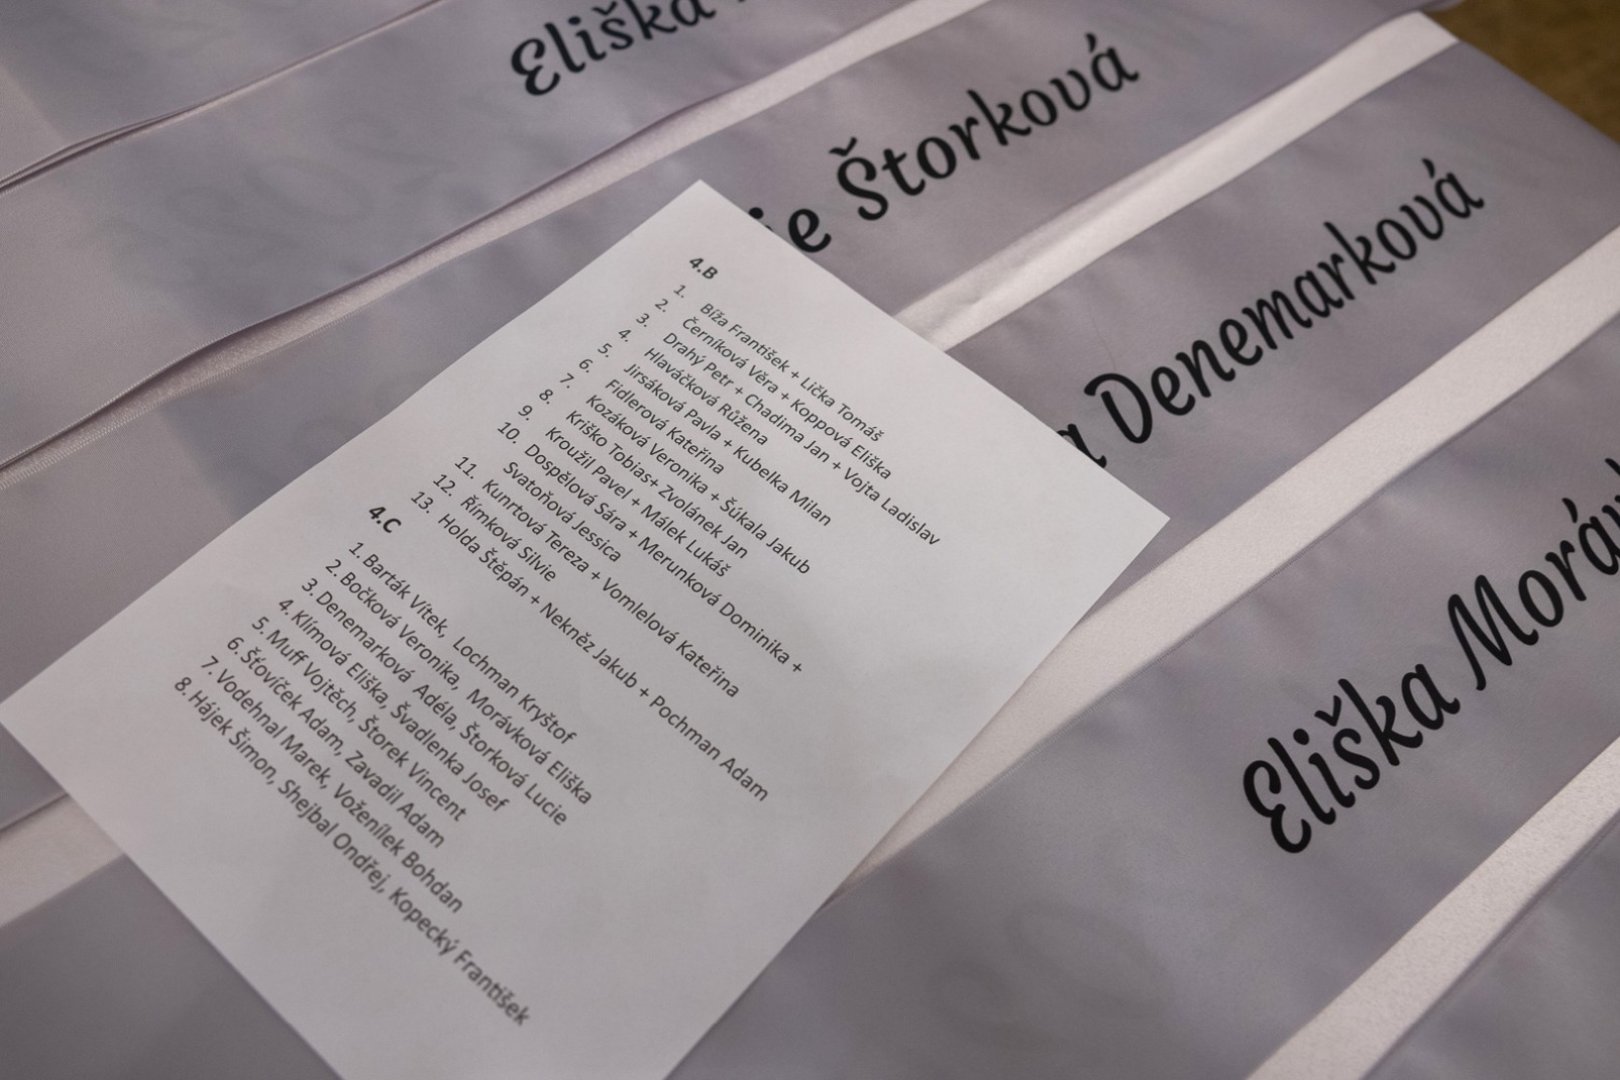 Eliška
ie Štorková
a Denemarková
Eliška Moráv
4.B
1. Bíža František + Lička Tomáš
2. Černíková Věra + Koppová Eliška
3. Drahý Petr + Chadima Jan + Vojta Ladislav
4. Hlaváčková Růžena
5. Jirsáková Pavla + Kubelka Milan
6. Fidlerová Kateřina
7. Kozáková Veronika + Šúkala Jakub
8. Kriško Tobias+ Zvolánek Jan
9. Kroužil Pavel + Málek Lukáš
10. Dospělová Sára + Merunková Dominika +
Svatoňová Jessica
11. Kunrtová Tereza + Vomlelová Kateřina
12. Římková Silvie
13. Holda Štěpán + Nekněz Jakub + Pochman Adam
4.C
1. Barták Vítek, Lochman Kryštof
2. Bočková Veronika, Morávková Eliška
3. Denemarková Adéla, Štorková Lucie
4. Klímová Eliška, Švadlenka Josef
5. Muff Vojtěch, Štorek Vincent
6. Šťovíček Adam, Zavadil Adam
7. Vodehnal Marek, Voženílek Bohdan
8. Hájek Šimon, Shejbal Ondřej, Kopecký František